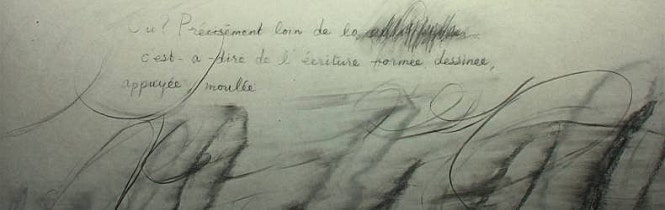 Où? Précisément loin de la
c'est-à-dire de l'écriture formée dessinée,
appuyée, moulée